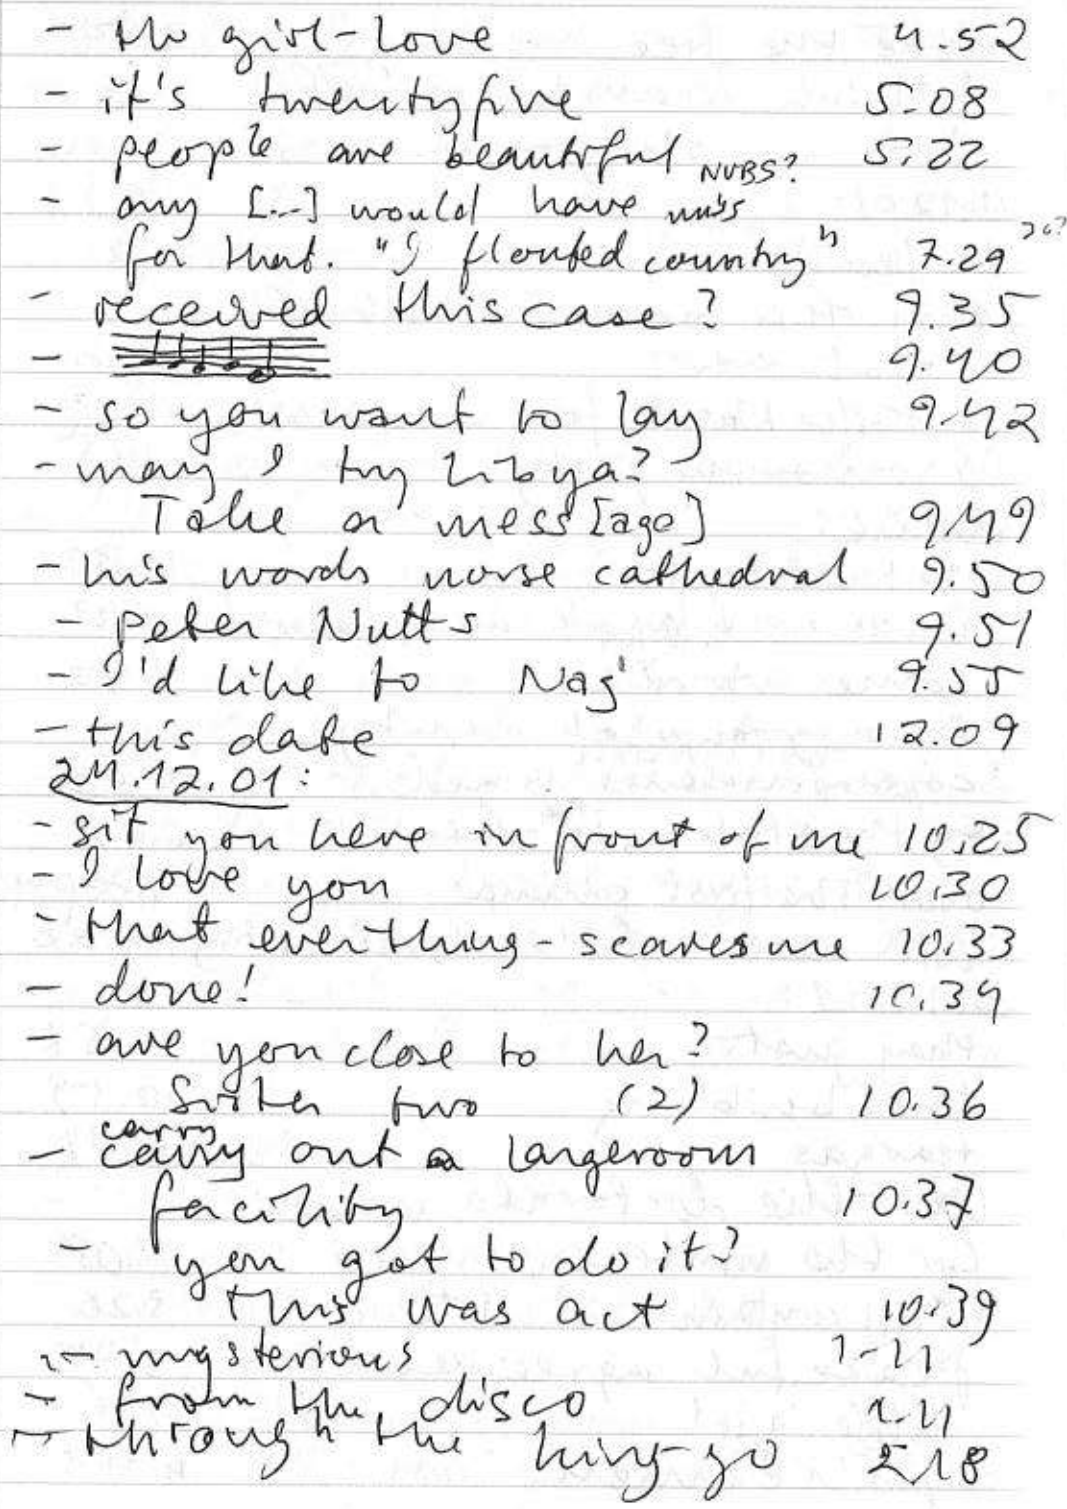 - the girl-love 4.52
- it's twentyfive 5.08
- people are beautiful 5.22
NUBS?
- any [...] would have nubs
for that. "I flouted country" 7.29
- received this case? 9.35
- 9.40
- so you want to lay 9.42
- may I try Libya?
Take a mess[age] 9.49
- his words norse cathedral 9.50
- Peter Nutts 9.51
- I'd like to Nag' 9.55
- this date 12.09
24.12.01:
- sit you here in front of me 10.25
- I love you 10.30
- that everthing - scares me 10.33
- done! 10.34
- are you close to her?
Sister two (2) 10.36
carry
- carry out a largeroom
facility 10.37
- you got to do it?
this was act 10.39
- mysterious 1.11
- from the disco
- through the 2.18